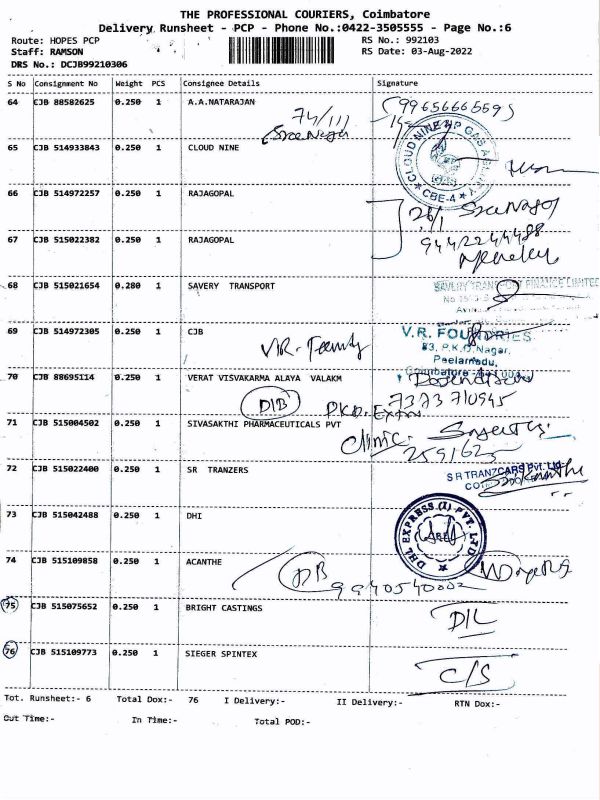 THE PROFESSIONAL COURIERS, Coimbatore
Delivery Runsheet - PCP - Phone No.:0422-3505555 - Page No.:6
Route: HOPES PCP
RS No.: 992103
Staff: RAMSON
RS Date: 03-Aug-2022
DRS No.: DCJB99210306
S No Consignment No Weight PCS Consignee Details Signature
64 CJB 88582625 0.250 1 A.A.NATARAJAN
74/111
SreeNagar
9965666595
65 CJB 514933843 0.250 1 CLOUD NINE
CLOUD NINE HP GAS AGENCY
CBE-4
66 CJB 514972257 0.250 1 RAJAGOPAL
SreeNagar
67 CJB 515022382 0.250 1 RAJAGOPAL
9442244488
68 CJB 515021654 0.280 1 SAVERY TRANSPORT
SAVERY TRANSPORT FINANCE LIMITED
69 CJB 514972305 0.250 1 CJB
V.R. FOUNDRIES
83, P.K.D. Nagar,
Peelamedu,
Coimbatore
70 CJB 88695114 0.250 1 VERAT VISVAKARMA ALAYA VALAKM
D/B
7373710945
71 CJB 515004502 0.250 1 SIVASAKTHI PHARMACEUTICALS PVT
Clinic.
72 CJB 515022400 0.250 1 SR TRANZERS
S R TRANZCARS Pvt. Ltd.
73 CJB 515042488 0.250 1 DHI
DHL EXPRESS (I) PVT. LTD
74 CJB 515109858 0.250 1 ACANTHE
DB
9940540002
75 CJB 515075652 0.250 1 BRIGHT CASTINGS
D/L
76 CJB 515109773 0.250 1 SIEGER SPINTEX
C/S
Tot. Runsheet:- 6 Total Dox:- 76 I Delivery:- II Delivery:- RTN Dox:-
Out Time:- In Time:- Total POD:-